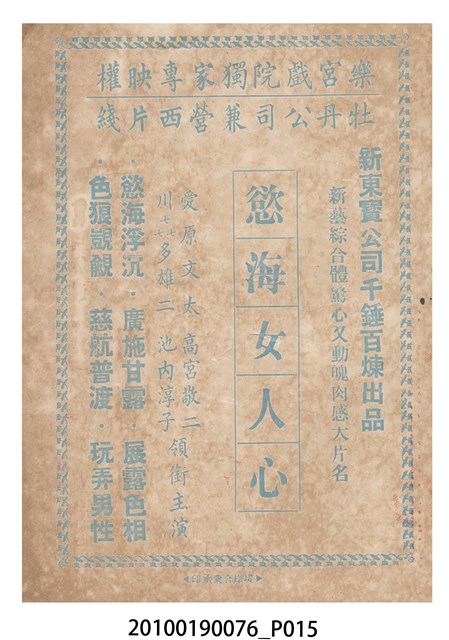 樂宮戲院獨家專映權
牡丹公司兼營西片綫
新東寶公司千錘百煉出品
新藝綜合體驚心又動魄肉感大片名
慾海女人心
愛原文太 高宮敬二
川㐂多雄二 池内淳子 領銜主演
·慾海浮沉·廣施甘露·展露色相
·色狼覬覦·慈航普渡·玩弄男性
20100190076_P015